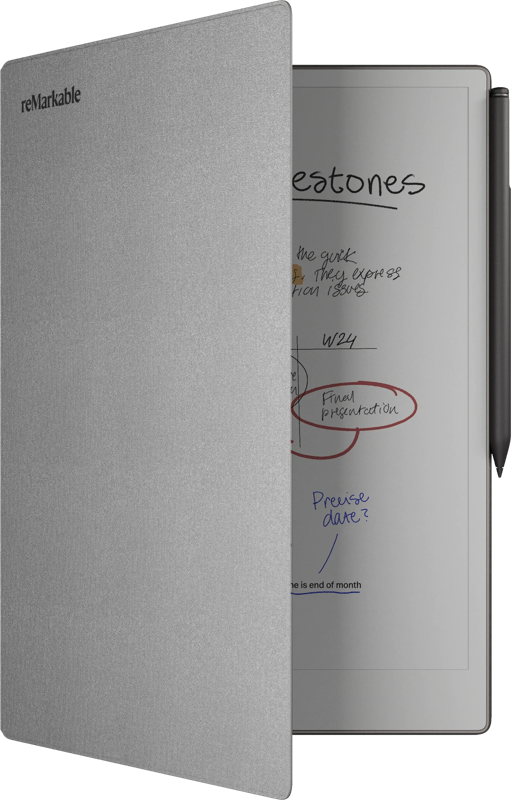 reMarkable
estones
the quick
They express
tion issues
W24
Final
presentation
Precise
date?
ne is end of month